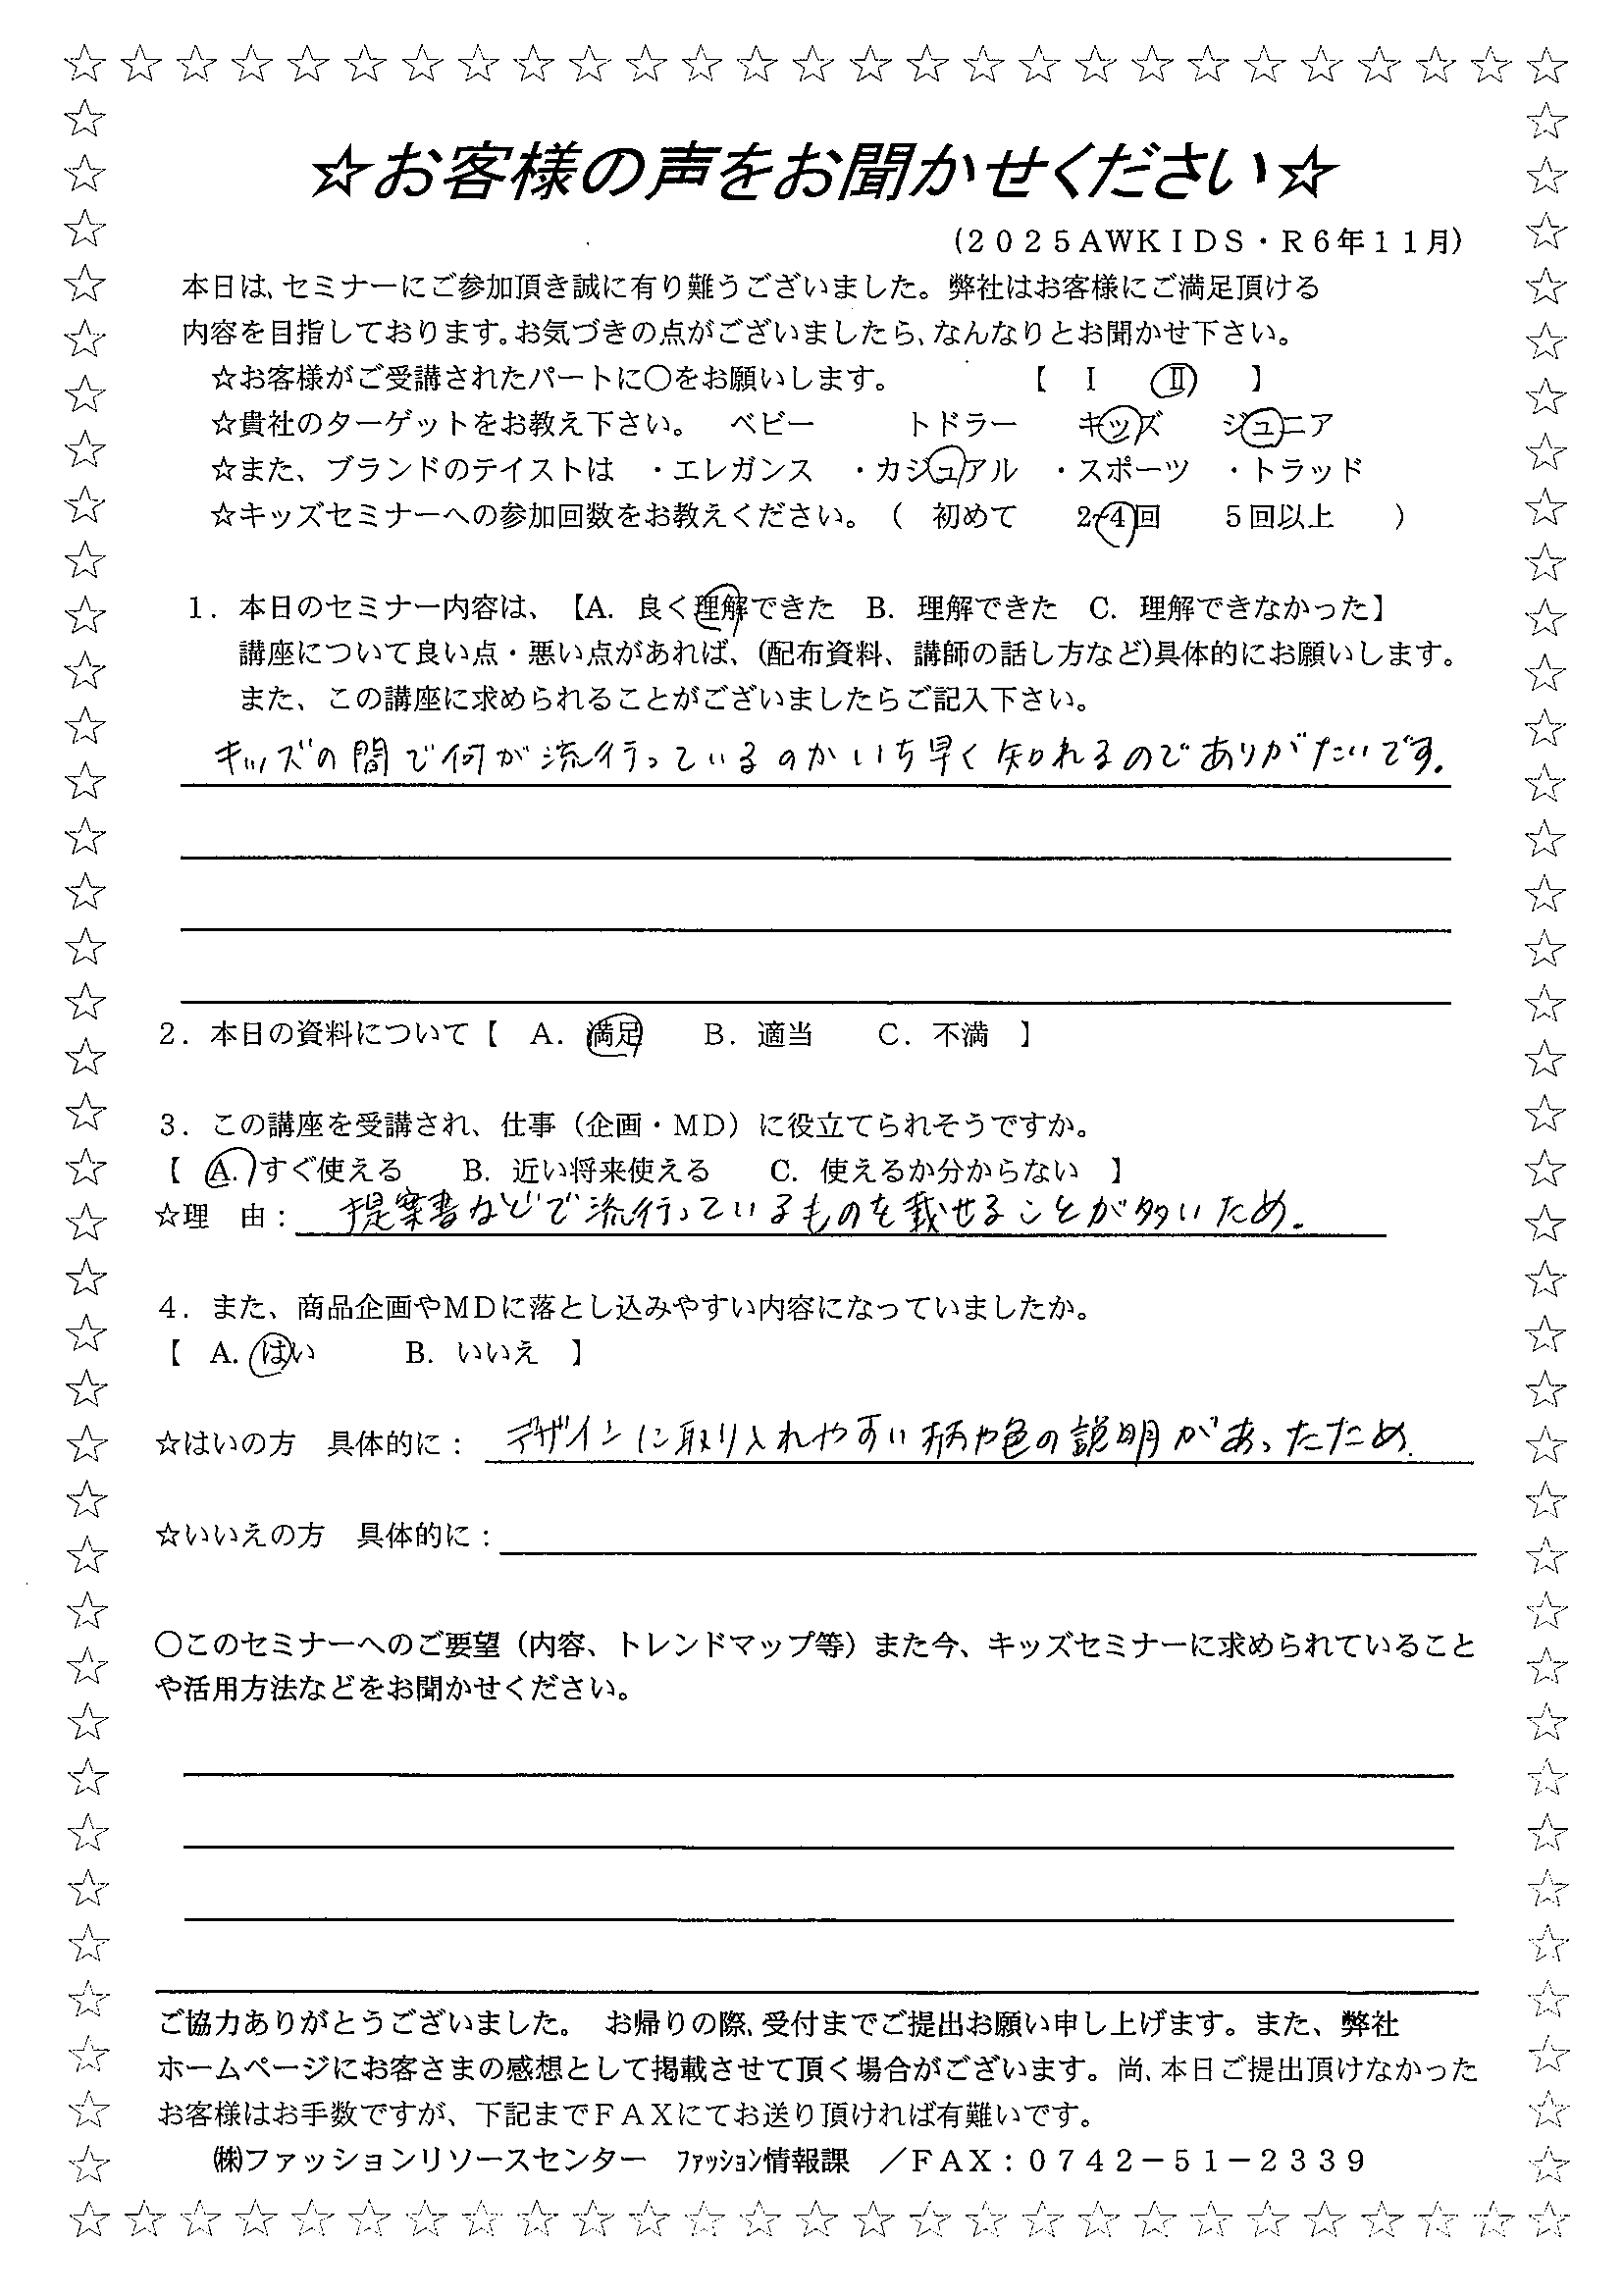 ☆お客様の声をお聞かせください☆
(２０２５AWＫＩＤＳ・Ｒ６年１１月)
本日は、セミナーにご参加頂き誠に有り難うございました。弊社はお客様にご満足頂ける
内容を目指しております。お気づきの点がございましたら、なんなりとお聞かせ下さい。
☆お客様がご受講されたパートに〇をお願いします。　【　Ⅰ　Ⅱ　】
☆貴社のターゲットをお教え下さい。　ベビー　トドラー　キッズ　ジュニア
☆また、ブランドのテイストは　・エレガンス　・カジュアル　・スポーツ　・トラッド
☆キッズセミナーへの参加回数をお教えください。（　初めて　2~4回　５回以上　）
１．本日のセミナー内容は、【A．良く理解できた　B．理解できた　C．理解できなかった】
講座について良い点・悪い点があれば、(配布資料、講師の話し方など)具体的にお願いします。
また、この講座に求められることがございましたらご記入下さい。
キッズの間で何が流行っているのかいち早く知れるのでありがたいです。
２．本日の資料について【　A．満足　B．適当　C．不満　】
３．この講座を受講され、仕事（企画・MD）に役立てられそうですか。
【　A. すぐ使える　B. 近い将来使える　C. 使えるか分からない　】
☆理　由：　提案書などで流行っているものを載せることが多いため。
４．また、商品企画やMDに落とし込みやすい内容になっていましたか。
【　A. はい　B. いいえ　】
☆はいの方　具体的に：　デザインに取り入れやすい柄や色の説明があったため.
☆いいえの方　具体的に：
〇このセミナーへのご要望（内容、トレンドマップ等）また今、キッズセミナーに求められていること
や活用方法などをお聞かせください。
ご協力ありがとうございました。　お帰りの際、受付までご提出お願い申し上げます。また、弊社
ホームページにお客さまの感想として掲載させて頂く場合がございます。尚、本日ご提出頂けなかった
お客様はお手数ですが、下記までＦＡＸにてお送り頂ければ有難いです。
㈱ファッションリソースセンター　ﾌｧｯｼｮﾝ情報課　／ＦＡＸ：０７４２－５１－２３３９